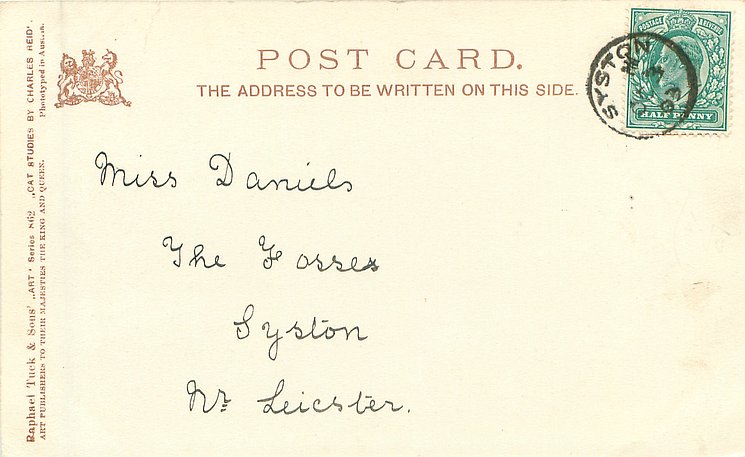 POST CARD.
THE ADDRESS TO BE WRITTEN ON THIS SIDE.
SYSTON
03
POSTAGE & REVENUE
HALFPENNY
Miss Daniels
The Fosses
Syston
Nr. Leicster.
Raphael Tuck & Sons' „ART" Series 862 „CAT STUDIES BY CHARLES REID'.
ART PUBLISHERS TO THEIR MAJESTIES THE KING AND QUEEN. Phototyped in Austria.